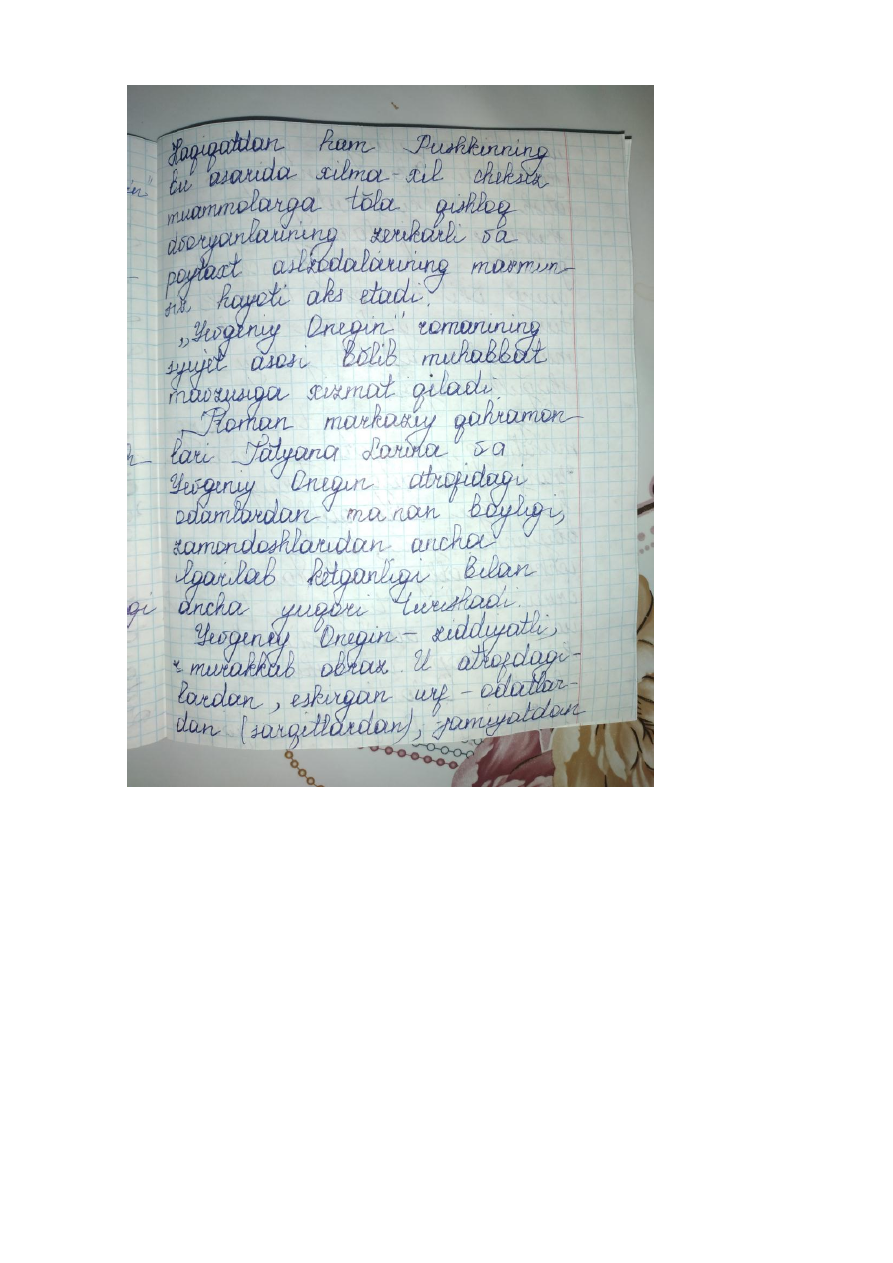 Haqiqatdan ham Pushkinning
bu asarida xilma-xil cheksiz
muammolarga to'la qishloq
dvoryanlarining zerikarli va
poytaxt aslzodalarining mazmun-
siz hayoti aks etadi.
„Yevgeniy Onegin" romanining
syujet asosi bo'lib muhabbat
mavzusga xizmat qiladi.
Roman markaziy qahramon-
lari Tatyana Larina va
Yevgeniy Onegin atrofidagi
odamlardan ma'nan boyligi,
zamondoshlaridan ancha
ilgarilab ketganligi bilan
ancha yuqori turishadi.
Yevgeniy Onegin – ziddiyatli,
murakkab obraz. U atrofdagi-
lardan, eskirgan urf – odatlar-
dan (sarqitlardan), jamiyatdan
gi